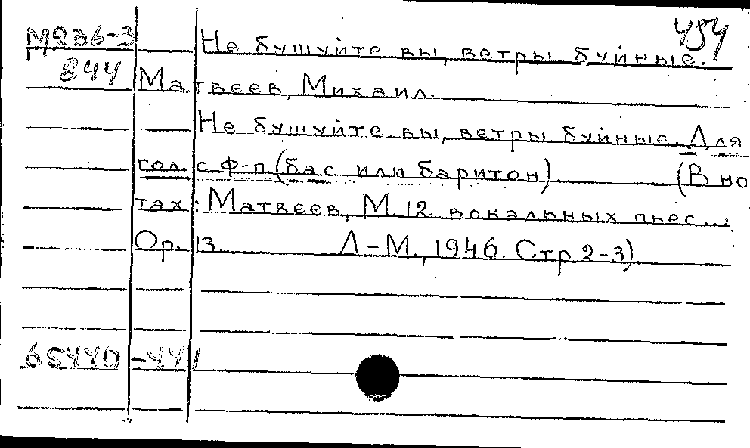 454
М236-3
844
Не бушуйте вы, ветры буйные.
Матвеев, Михаил.
Не бушуйте вы, ветры буйные. Для
гол. с ф-п (бас или баритон) (В но
тах: Матвеев, М. 12 вокальных пьес...:
Op. 13. Л-М., 1946. Стр 2-3).